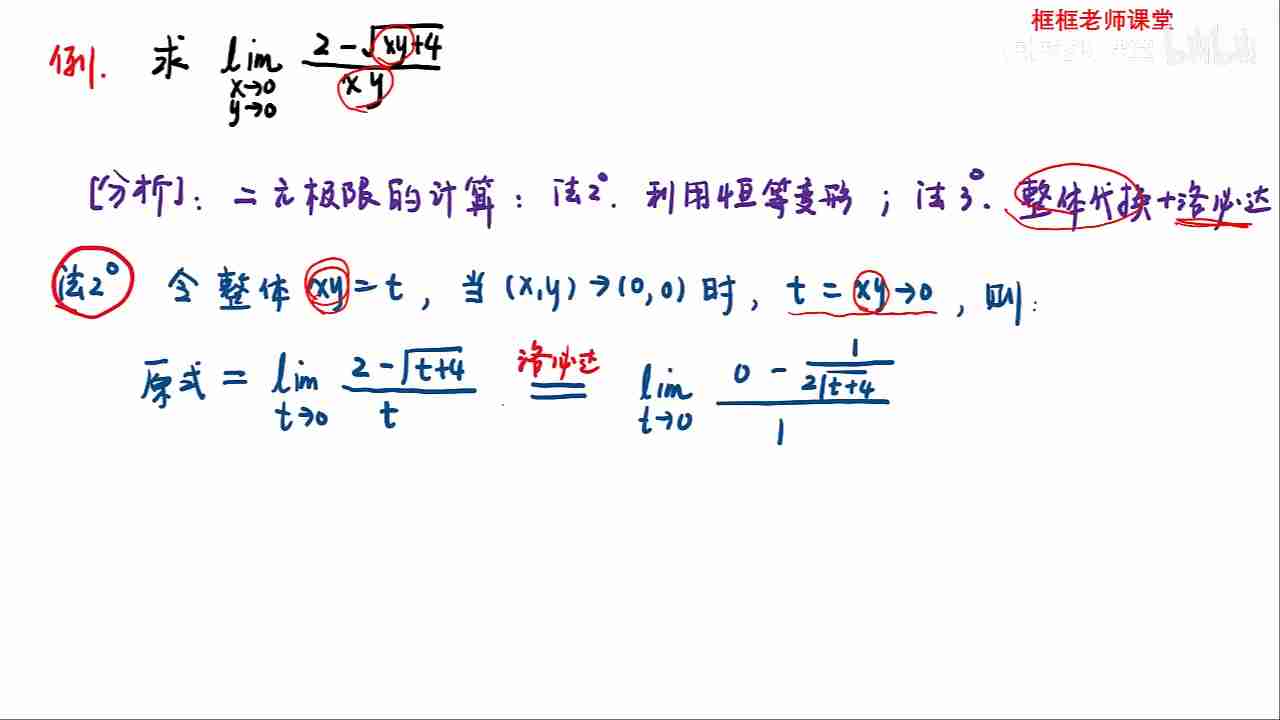 框框老师课堂
例. 求 lim x→0 y→0 (2-√(xy+4))/(xy)
[分析]: 二元极限的计算: 法2°. 利用恒等变形; 法3°. 整体代换+洛必达
法2° 令整体 xy=t, 当 (x,y)→(0,0) 时, t=xy→0, 则:
原式 = lim t→0 (2-√(t+4))/t 洛必达 = lim t→0 (0 - 1/(2√(t+4)))/1